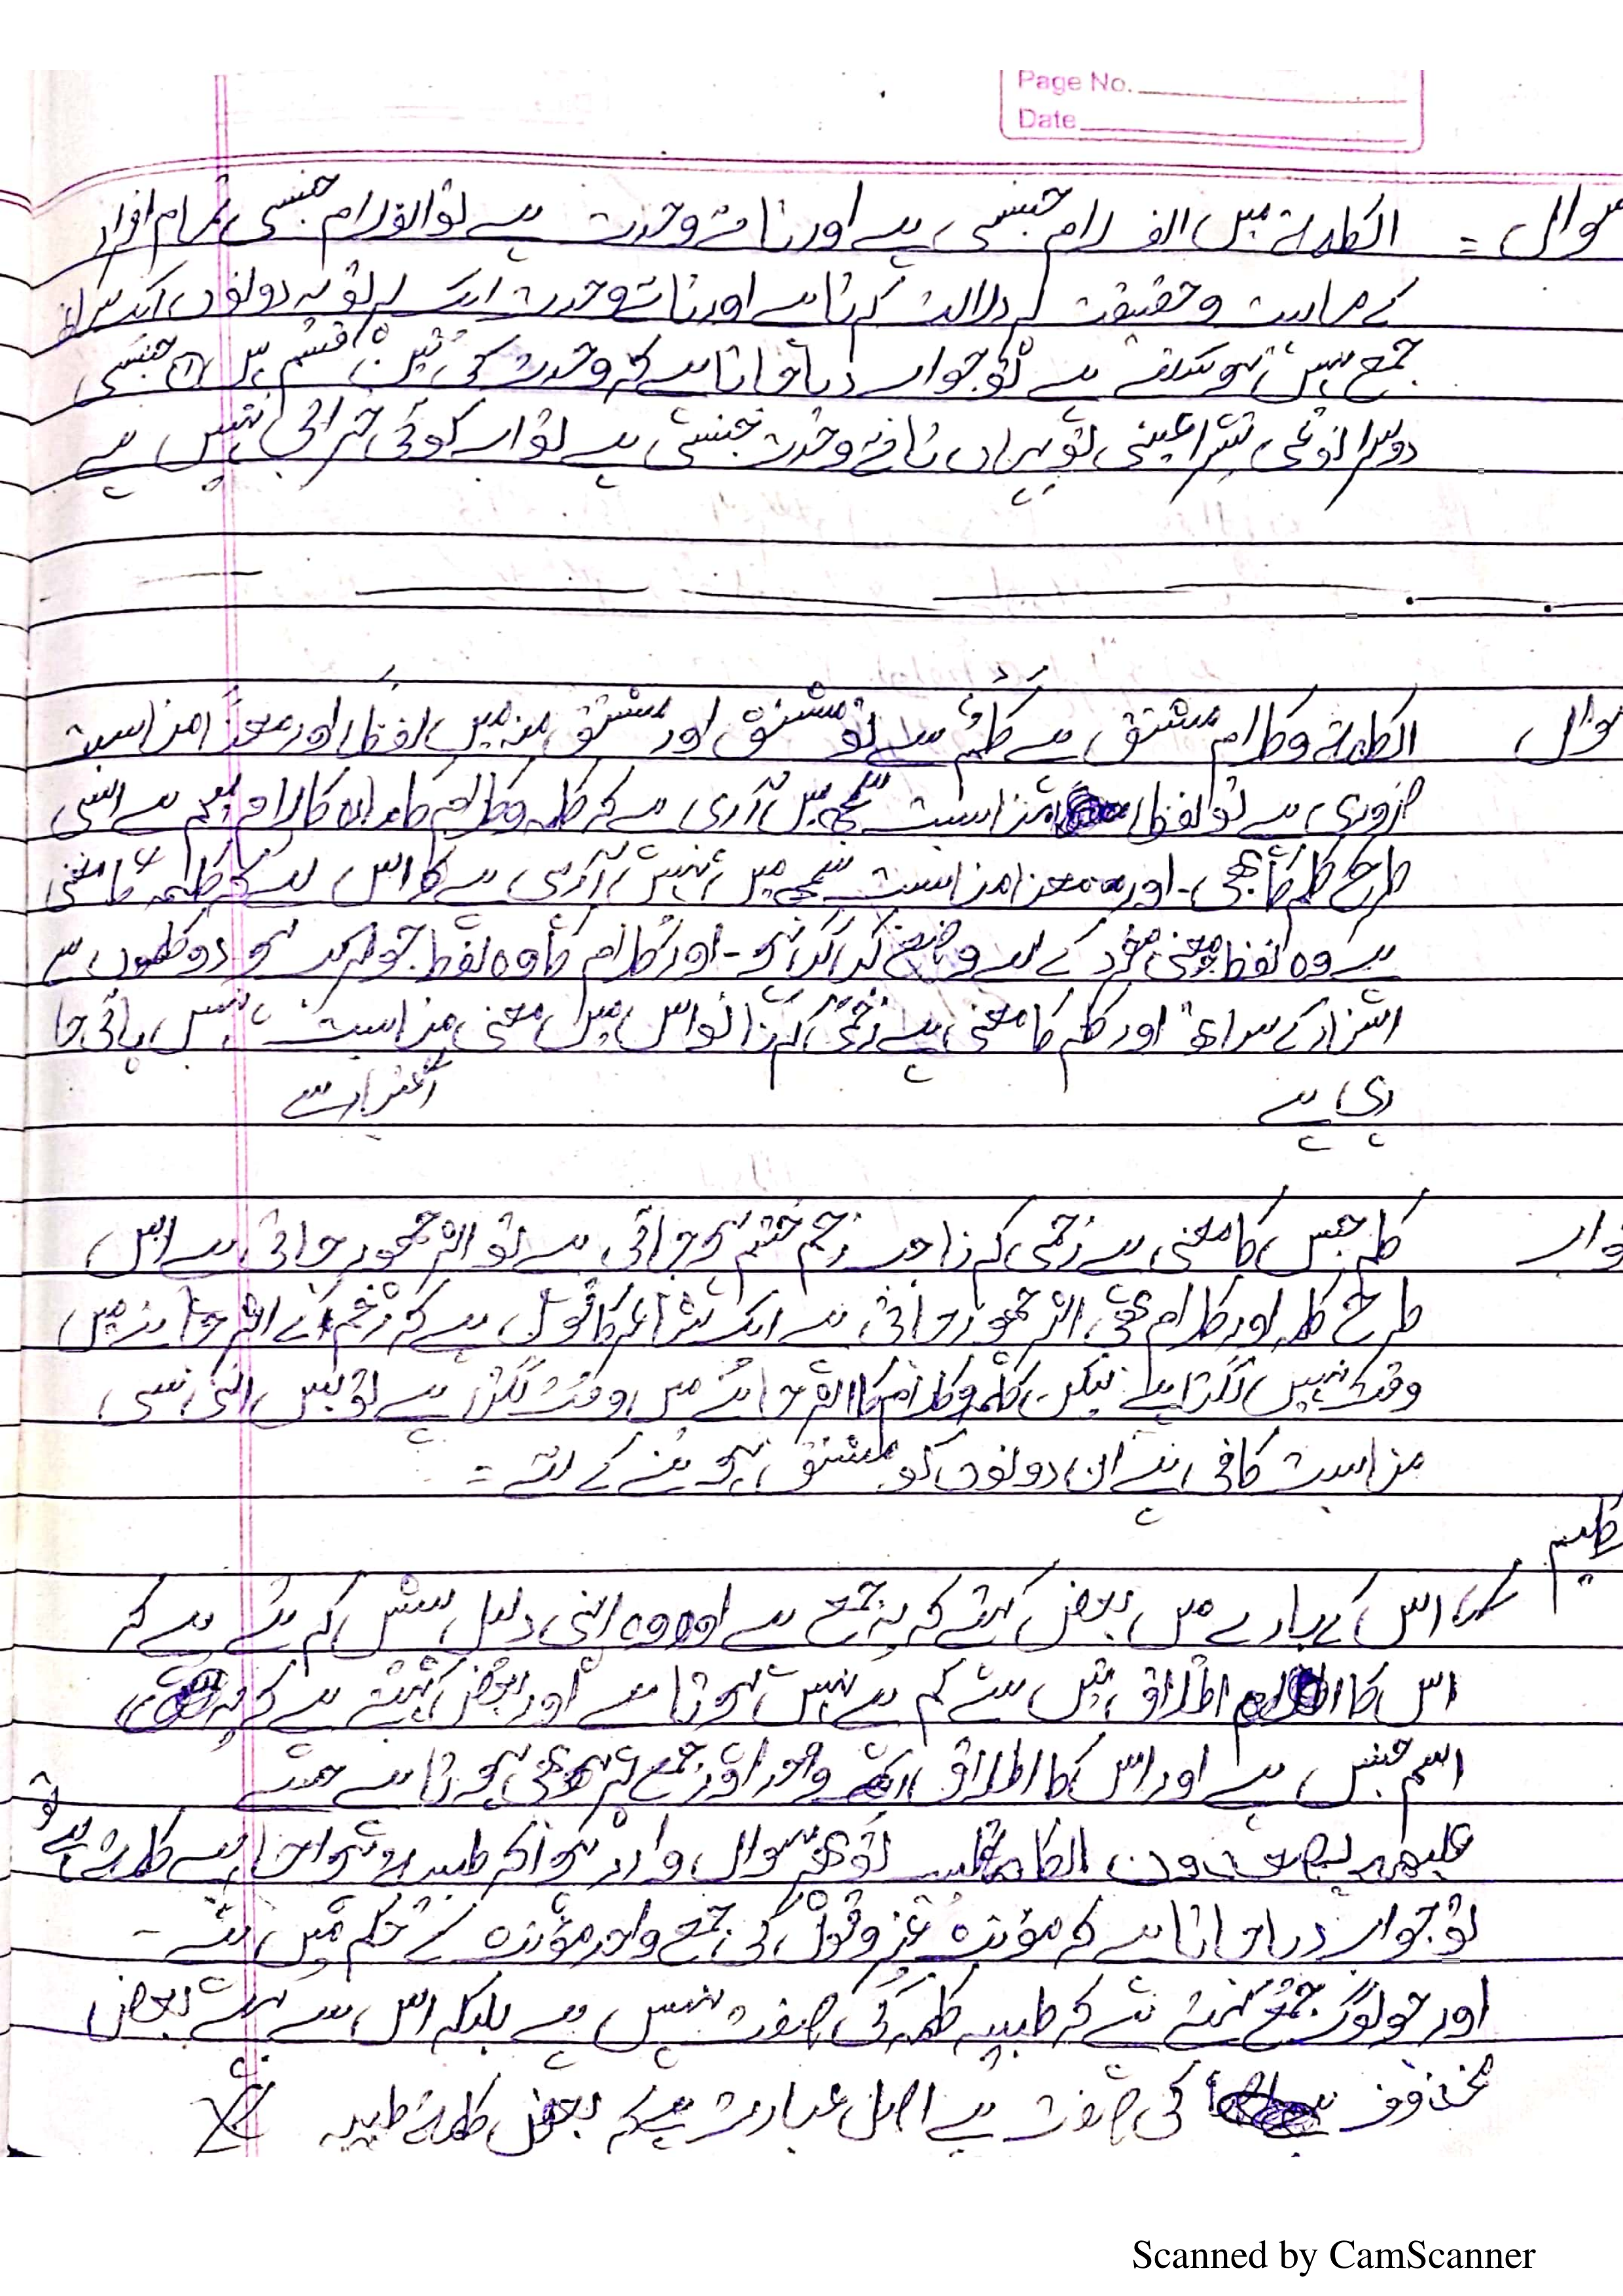 Page No.
Date
سوال = الکلمۃ میں الف لام جنسی ہے اور تائے وحدت ہے تو الف لام جنسی تمام افراد
کے ماہیت و حقیقت پر دلالت کرتا ہے اور تائے وحدت ایک پر تو یہ دونوں ایک ساتھ
جمع نہیں ہو سکتے ہے تو جواب دیا جاتا ہے کہ وحدت کی تین قسم ہیں جنسی
دوسرا نوعی تیسرا عینی تو یہاں تائے وحدت جنسی ہے تو اب کوئی خرابی نہیں ہے
سوال الکلمۃ وکلام مشتق ہے کَلْم سے تو مشتق اور مشتق منہ میں لفظا اور معنا مناسبت
ضروری ہے تو لفظا مناسبت سمجھ میں آ رہی ہے کہ کلمہ وکلام کا مادہ کلام میم ہے اسی
طرح کلم کا بھی۔ اور معنا مناسبت سمجھ میں نہیں آ رہی ہے کا اس لئے کہ کلمہ کا معنی
ہے وہ لفظ جو معنی مفرد کے لئے وضع کیا گیا ہو۔ اور کلام کا وہ لفظ جو مرکب ہو دو کلموں سے
اسناد کے ساتھ اور کلم کا معنی ہے زخمی کرنا تو اس میں معنی مناسبت نہیں پائی جا
رہی ہے
اعتبار سے
جواب کلم جس کا معنی ہے زخمی کرنا جب زخم ختم ہو جاتی ہے تو اثر چھوڑ جاتی ہے اس
طرح کلمہ اور کلام بھی اثر چھوڑ جاتی ہے ایک شاعر کا قول ہے کہ زخم کے اثر جانے میں
وقت نہیں لگتا ہے لیکن کلمہ وکلام کا اثر جانے میں وقت لگتا ہے تو بس اتنی سی
مناسبت کافی ہے ان دونوں کو مشتق ہونے کے لئے =
کلم اس کے بارے میں بعض کہتے کہ یہ جمع ہے اور وہ اپنی دلیل پیش کرتے ہے کہ
اس کا اطلاق تین سے کم پے نہیں ہوتا ہے اور بعض کہتے ہے کہ یہ
اسم جنس ہے اور اس کا اطلاق واحد اور جمع پر بھی ہوتا ہے جیسے
الیہ یصعد الکلم الطیب تو پھر سوال وارد ہوا کہ طیب
تو جواب دیا جاتا ہے کہ مؤنث غیر کی جمع واحد مؤنث کے حکم میں ہے -
اور جو لوگ جمع کہتے ہے کہ طیب کلم کی صفت نہیں ہے بلکہ اس سے پہلے بعض
محذوف کی صفت ہے اصل عبارت ہے کہ بعض
Scanned by CamScanner